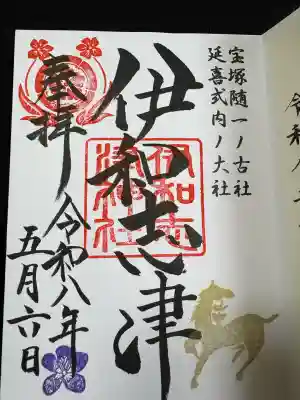 宝塚随一ノ古社
延喜式内ノ大社
伊和志津
伊和志
津神社
奉拝
令和八年
五月六日